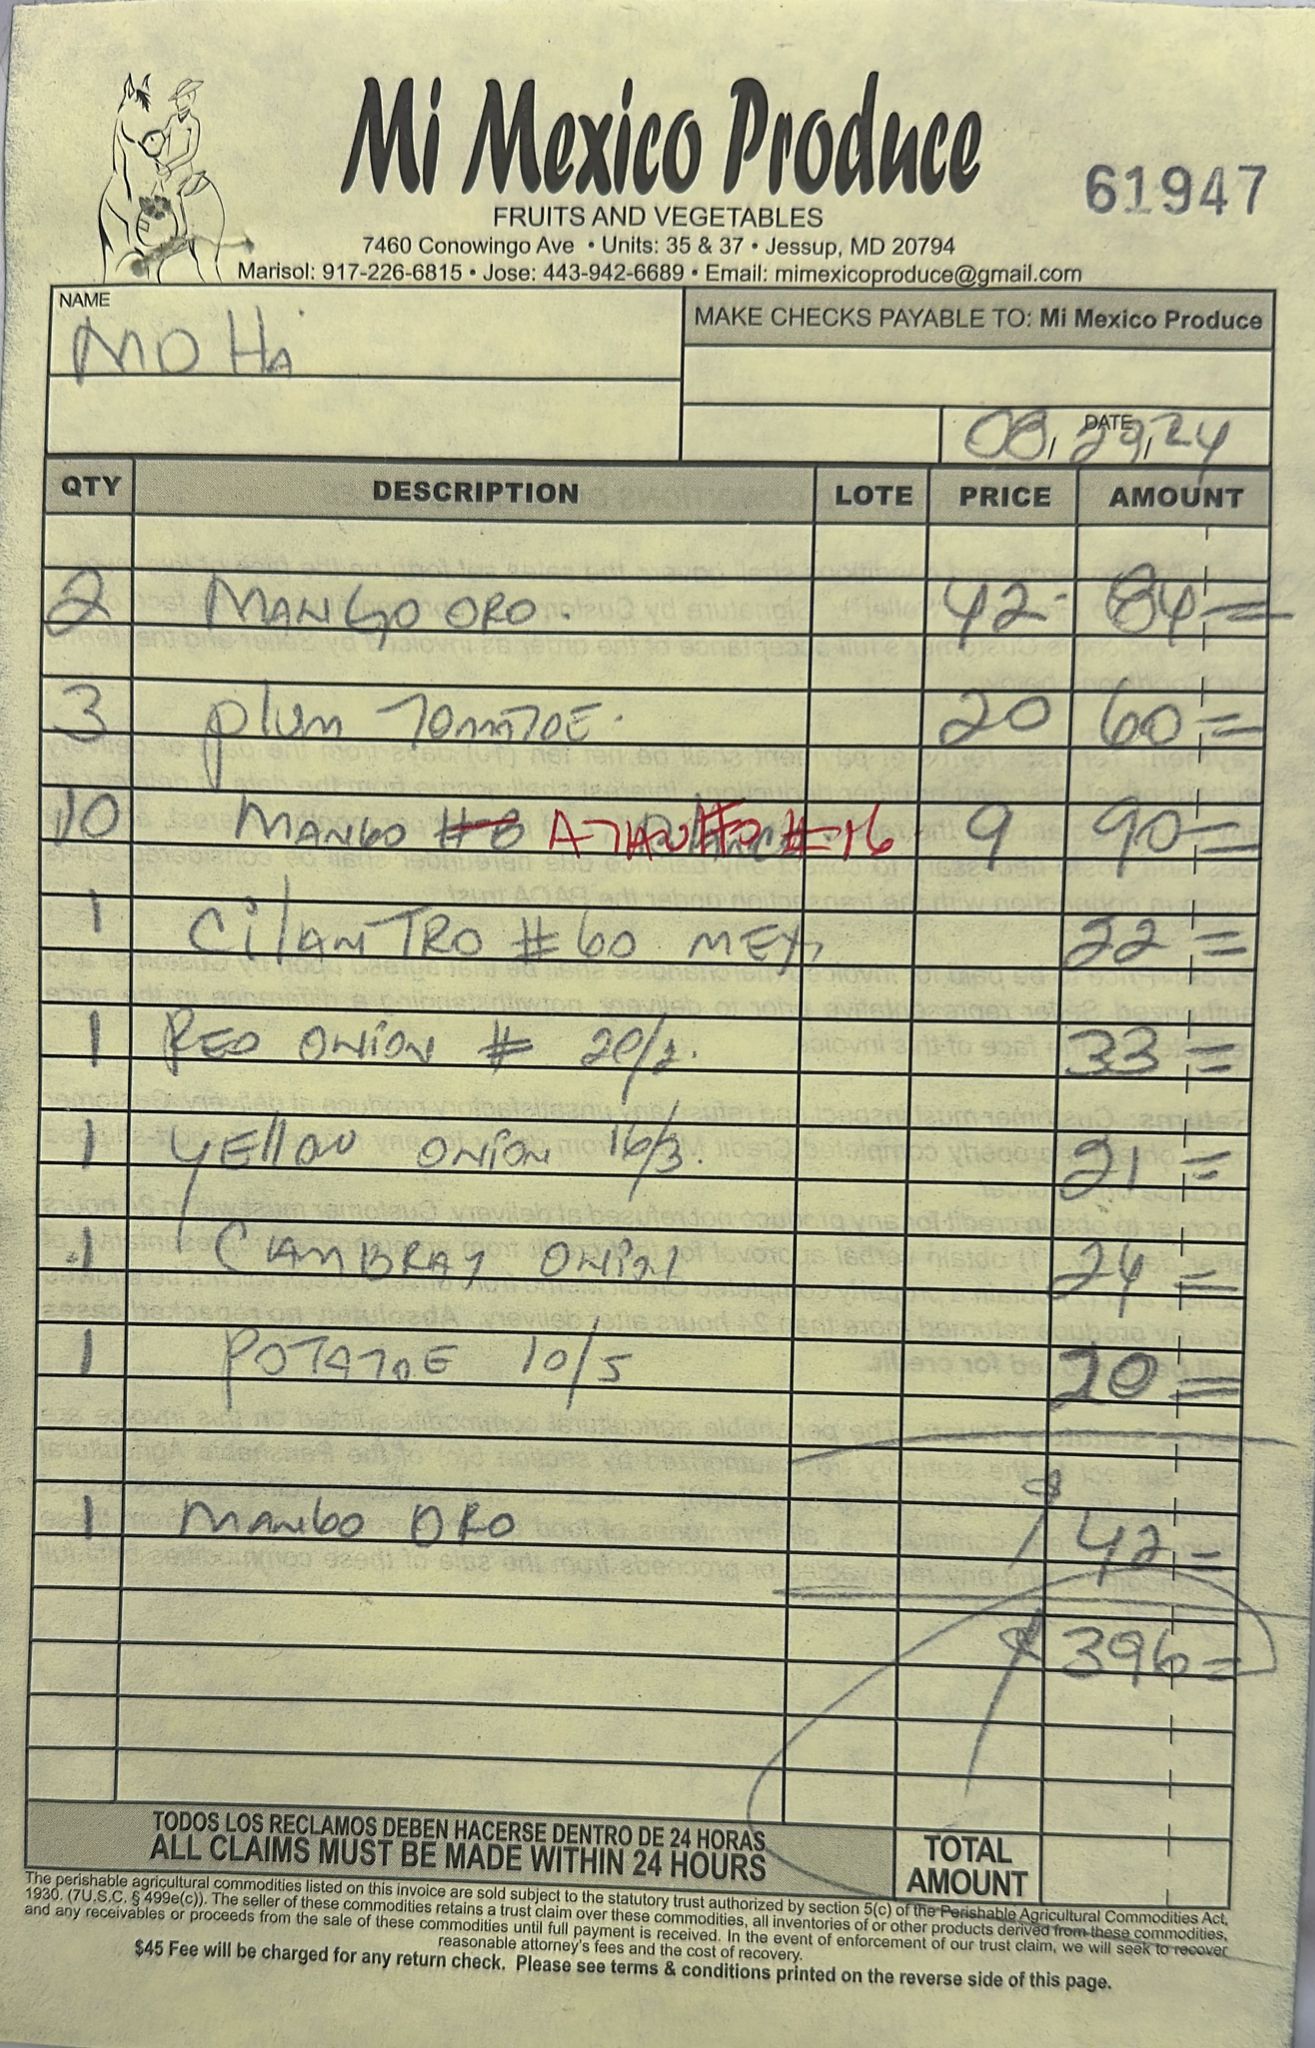 Mi Mexico Produce
61947
FRUITS AND VEGETABLES
7460 Conowingo Ave • Units: 35 & 37 • Jessup, MD 20794
Marisol: 917-226-6815 • Jose: 443-942-6689 • Email: mimexicoproduce@gmail.com
NAME
MO HA
MAKE CHECKS PAYABLE TO: Mi Mexico Produce
DATE
08, 29, 24
QTY DESCRIPTION LOTE PRICE AMOUNT
2 MANGO ORO. 42 84=
3 Plum TOMATOE. 20 60=
10 MANGO #16 9 90=
1 CilANTRO #60 MEX, 22=
1 RED ONION # 20/2. 33=
1 YEllOW ONION 16/3. 21=
1 CAMBRAY ONION 24=
1 POTATOE 10/5 20=
1 MANGO ORO $ 42=
$ 396=
TODOS LOS RECLAMOS DEBEN HACERSE DENTRO DE 24 HORAS
ALL CLAIMS MUST BE MADE WITHIN 24 HOURS
TOTAL AMOUNT
The perishable agricultural commodities listed on this invoice are sold subject to the statutory trust authorized by section 5(c) of the Perishable Agricultural Commodities Act,
1930. (7U.S.C. § 499e(c)). The seller of these commodities retains a trust claim over these commodities, all inventories of or other products derived from these commodities,
and any receivables or proceeds from the sale of these commodities until full payment is received. In the event of enforcement of our trust claim, we will seek to recover
reasonable attorney's fees and the cost of recovery.
$45 Fee will be charged for any return check. Please see terms & conditions printed on the reverse side of this page.